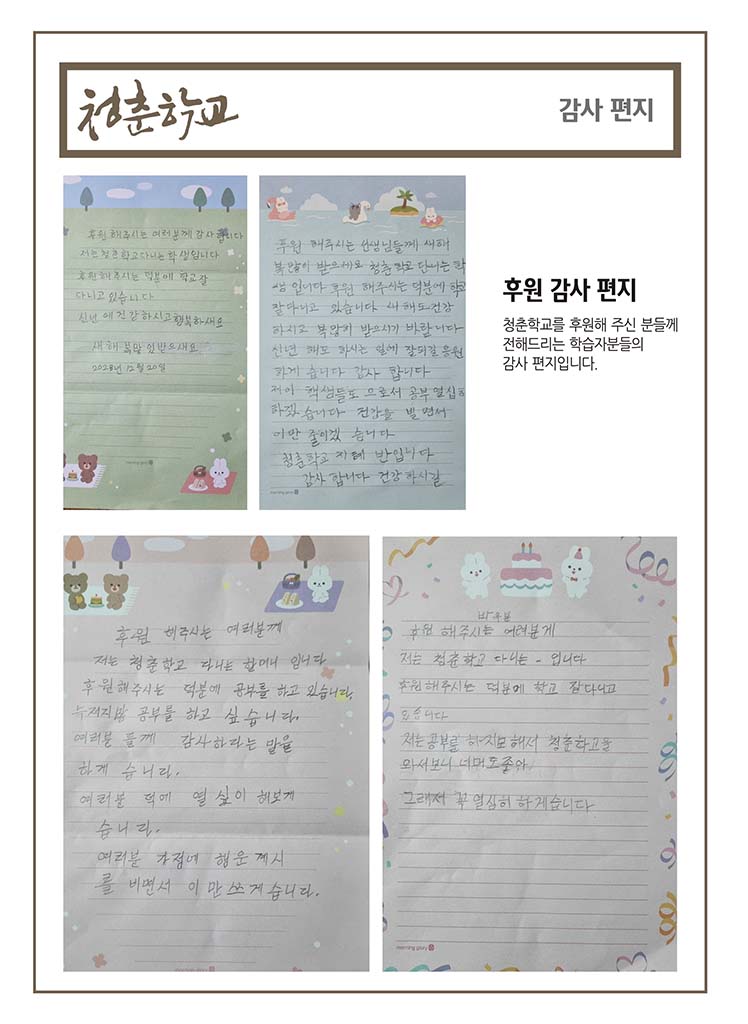 청춘학교
감사 편지
후원 해주시는 여러분께 감사합니다
저는 청춘학교 다니는 학생입니다
후원해주시는 덕분에 학교 잘
다니고 있습니다
신년 에 건강하시고 행복하새요
새해 복많이 받으새요
12월 20일
후원 해주시는 선생님들께 새해
복많이 받으세요 청춘학교 단니는 학
생 입니다 후원 해주시는 덕분에 학교
잘다니고 있습니다 새해도 건강
하시고 복많히 받으시기 바랍니다
신년 해도 하시는 일에 잘되길 응원
하게 습니다 감사 합니다
저이 학생들도 으로서 공부 열심히
하겠 습니다 건강을 빌면서
이만 줄이겠 습니다
청춘학교 지혜 반입니다
감사 합니다 건강하시길
morning glory
후원 감사 편지
청춘학교를 후원해 주신 분들께
전해드리는 학습자분들의
감사 편지입니다.
후원 해주시는 여러분께
저는 청춘학교 다니는 할머니 입니다
후원해주시는 덕분에 공부를 하고 있습니다
늦져지많 공부를 하고 싶습니다.
여러분 들께 감사하다는 말을
하게 습니다.
여러분 덕에 열싶이 해보게
습니다.
여러분 가정에 행운 계시
를 비면서 이만 쓰게습니다.
후원 해주시는 여러분게
저는 청춘학교 다니는 - 입니다
후원해주시는 덕분에 학교 잘다니고
있습니다
저는 공부를 하지모해서 청춘학교을
와서보니 너머도좋아
그래저 꼭 열심히 하게습니다
morning glory